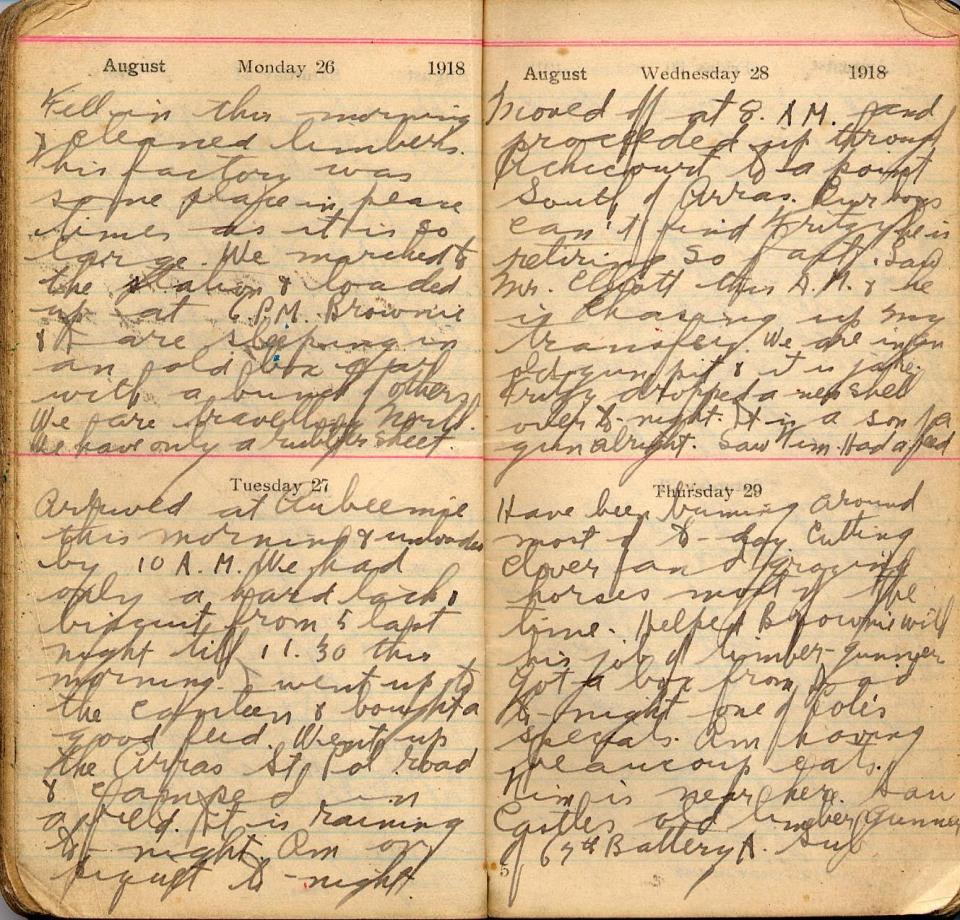 August Monday 26 1918
Fell in this morning
& cleaned limbers.
This factory was
some place in peace
times as it is so
large. We marched to
the station & loaded
up at 6 P.M. Brownie
& I are sleeping in
an old box car
with a bunch of others.
We are travelling North.
We have only a rubber sheet.
Tuesday 27
Arrived at
this morning & unloaded
by 10 A.M. We had
only a hard tack
biscuit from 5 last
night till 11.30 this
morning. I went up to
the canteen & bought a
good feed. Went up
the Arras St. Pol road
& camped in
a field. It is raining
to-night. Am on
picquet to-night
August Wednesday 28 1918
Moved off at 8. A.M. and
proceeded up through
Achicourt to a point
South of Arras. Our boys
can't find Fritzy he is
retiring so fast. Saw
Mr. Elliott this A.M. & he
is chasing up my
transfer. We are in an
old gun pit & it is jake.
Fritzy dropped a new shell
over to-night. It is a son of a
gun alright. Saw Him. Had a feed
Thursday 29
Have been bumming around
most of to-day cutting
clover and grazing
horses most of the
time. Helped Brownie with
his job of limber-gunner
Got a box from Dad
to-night one of
specials. Am having
beaucoup eats.
Him is near here. Saw
old limber gunner
of 67th Battery A. Sub
5